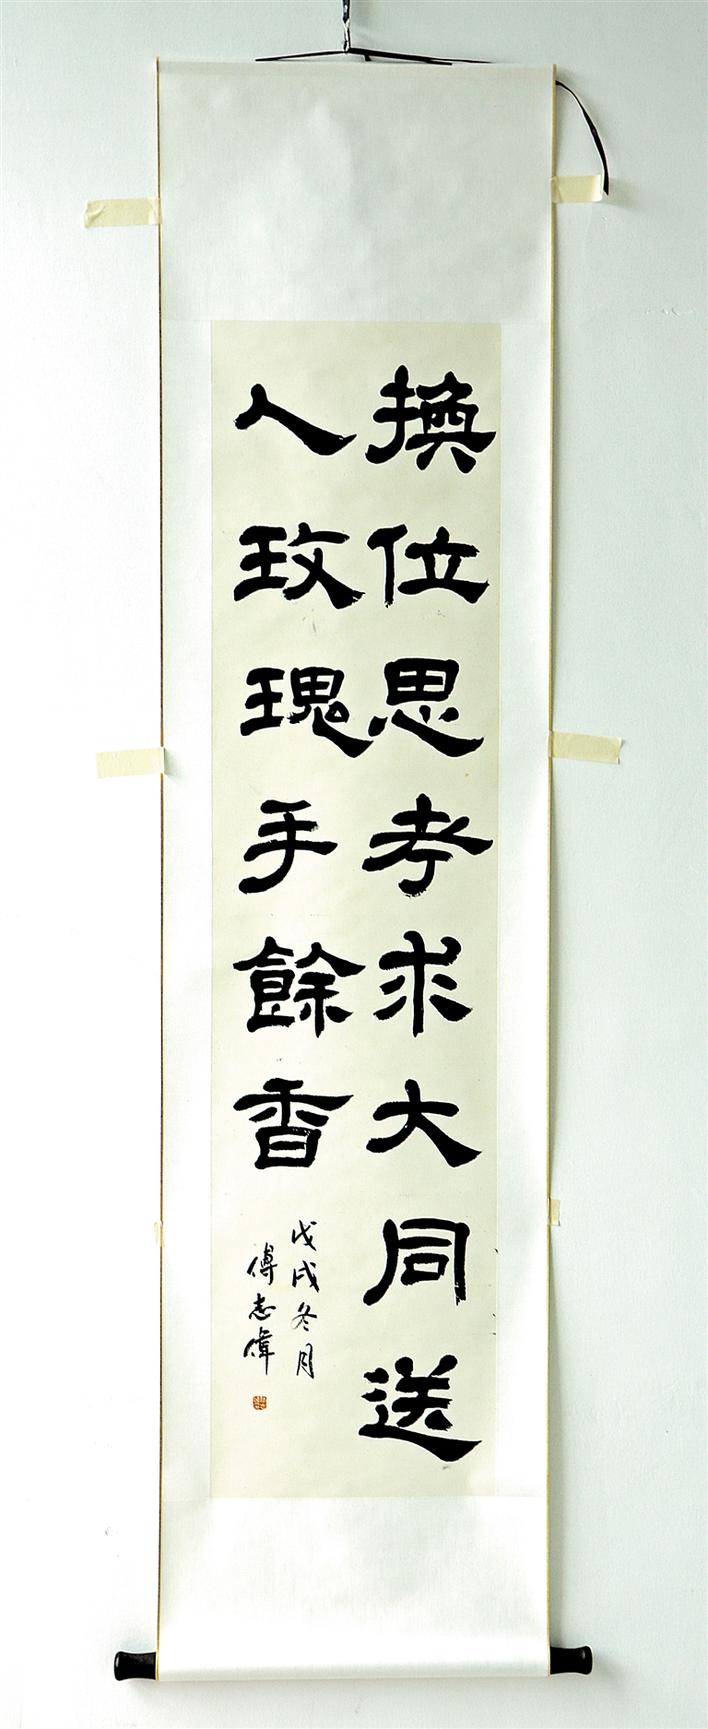 換位思考求大同送
人玫瑰手餘香
戊戌冬月
傅志偉